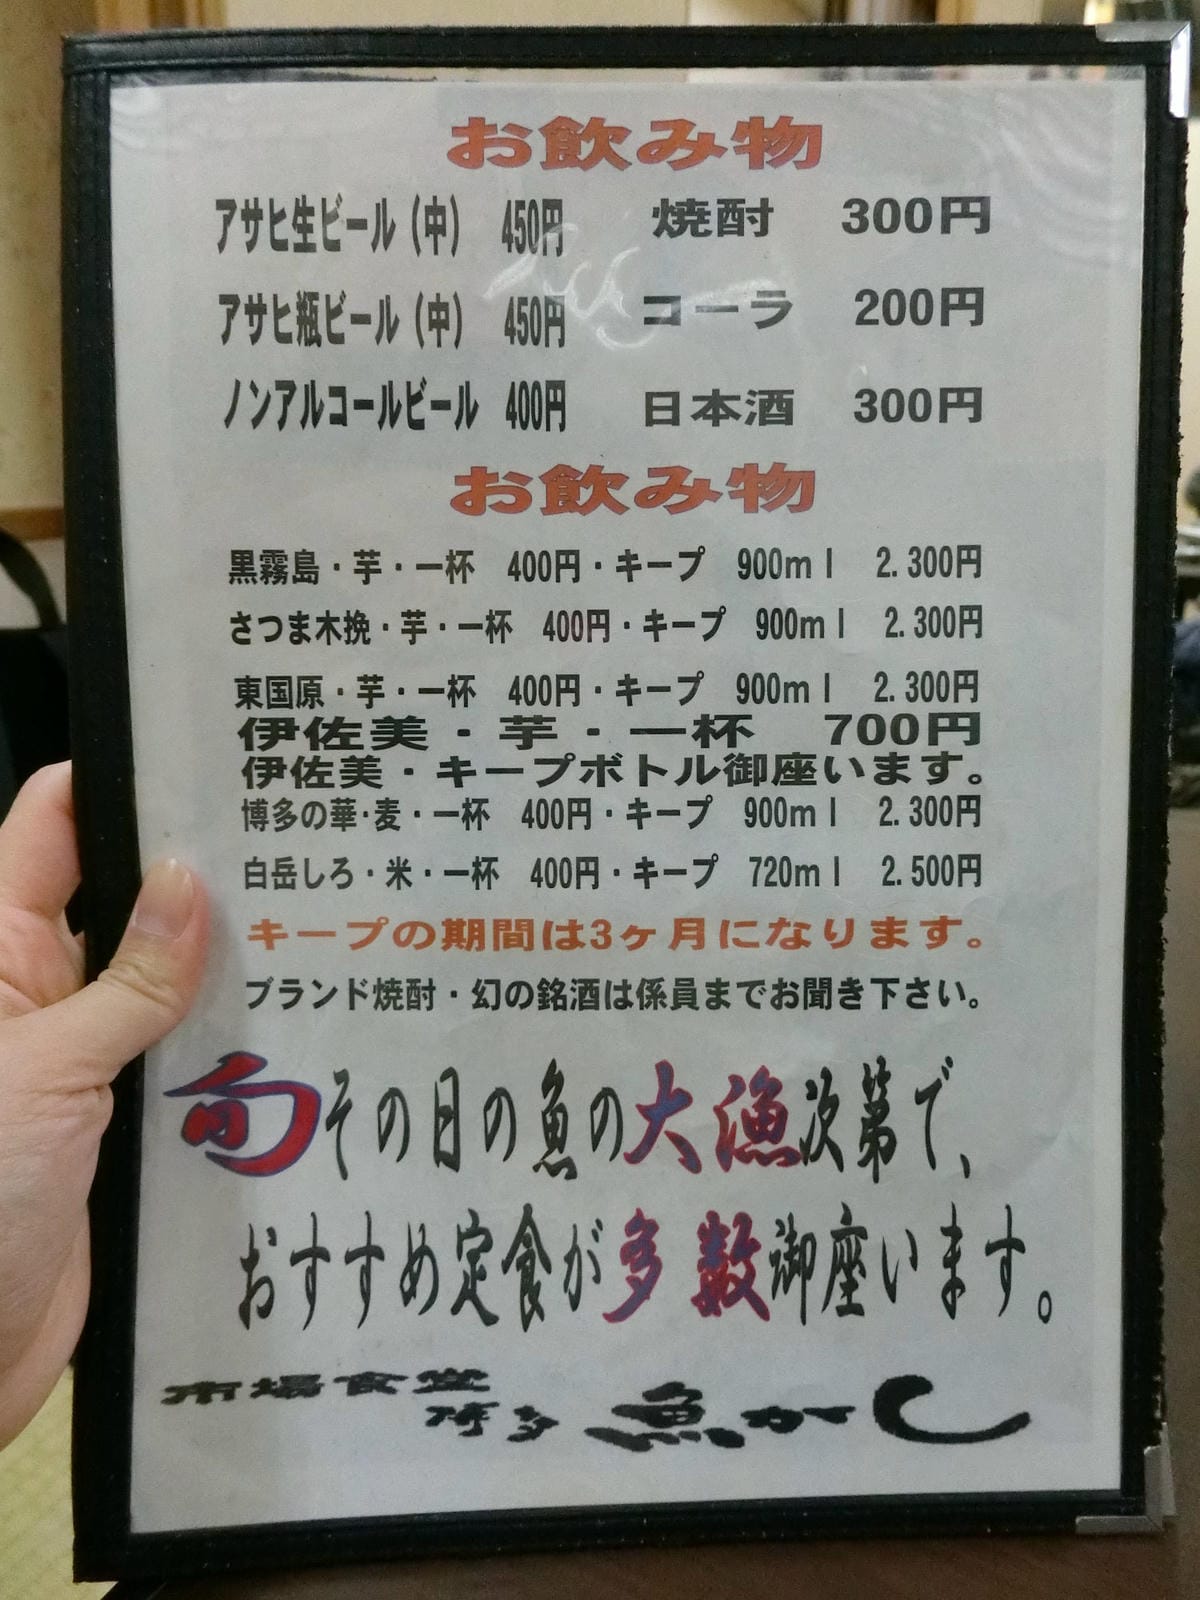 お飲み物
アサヒ生ビール（中） 450円 焼酎 300円
アサヒ瓶ビール（中） 450円 コーラ 200円
ノンアルコールビール 400円 日本酒 300円
お飲み物
黒霧島・芋・一杯 400円・キープ 900ml 2.300円
さつま木挽・芋・一杯 400円・キープ 900ml 2.300円
東国原・芋・一杯 400円・キープ 900ml 2.300円
伊佐美・芋・一杯 700円
伊佐美・キープボトル御座います。
博多の華・麦・一杯 400円・キープ 900ml 2.300円
白岳しろ・米・一杯 400円・キープ 720ml 2.500円
キープの期間は3ヶ月になります。
ブランド焼酎・幻の銘酒は係員までお聞き下さい。
旬その日の魚の大漁次第で、
おすすめ定食が多数御座います。
市場食堂
博多 魚がし